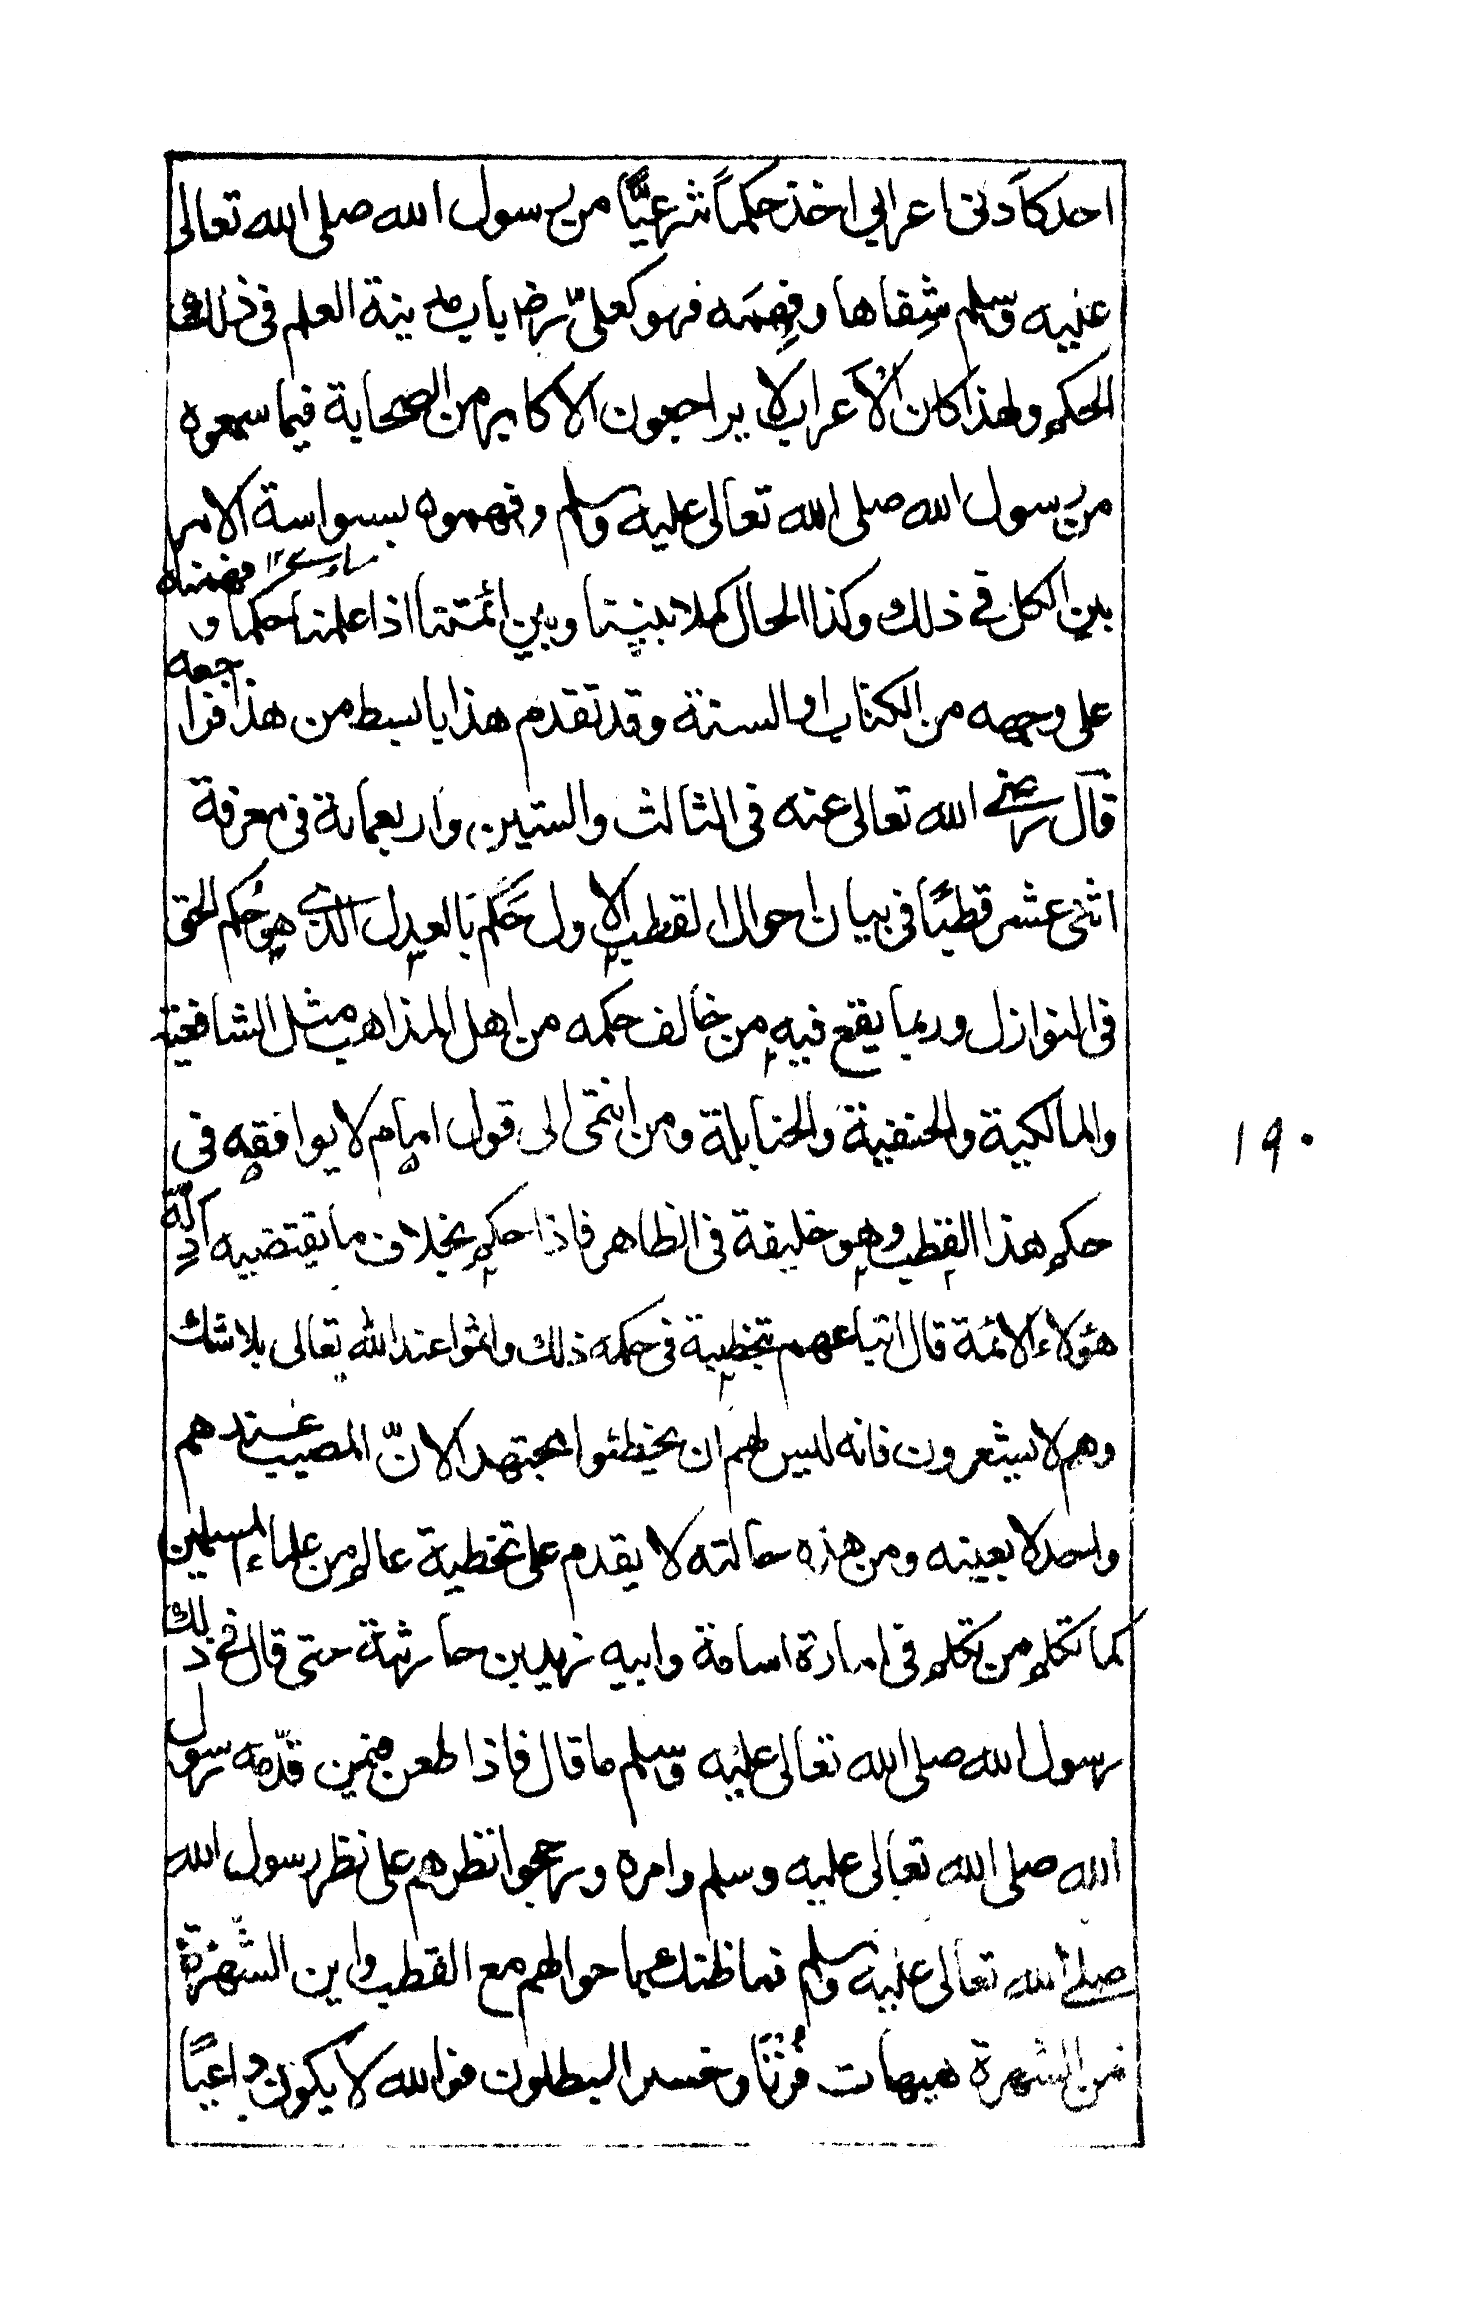 احد كأدنى اعرابي اخذ حكماً شرعيًّا من رسول الله صلى الله تعالى
عليه وسلم شِفاها وفَهِمَه فهو كعليّ رضا باب مدينة العلم في ذلك
الحكم ولهذا كان الأعراب لا يراجعون الاكابر من الصحابة فيما سمعوه
من رسول الله صلى الله تعالى عليه وسلم وفهموه بسواسة الامر
بين الكل في ذلك وكذا الحال كملا بيننا وبين ائمتنا اذا علمنا حكما و فهمناه
على وجهه من الكتاب او السنة وقد تقدم هذا بابسط من هذا فراجعه
قال رضي الله تعالى عنه في الثالث والستين واربعماىة في معرفة
اثنى عشر قطبًا في بيان احوال القطب الاول حَكَمَ بالعدل الذي هو حُكم الحق
في النوازل وربما يقع فيه من خالف حكمه من اهل المذاهب مثل الشافعية
والمالكية والحنفية والحنابلة ومن انتمى الى قول امام لا يوافقه في
حكم هذا القطب وهو خليفة في الظاهر فاذا حكم بخلاف ما يقتضيه ادلّة
هؤلاء الائمة قال اتباعهم بتخطيه في حكمه ذلك واثموا عند الله تعالى بلا شك
وهم لا يشعرون فانه ليس لهم ان يخطئوا مجتهدا لانّ المصيب عندهم
واحد لا بعينه ومن هذه حالته لا يقدم على تخطية عالم من علماء المسلمين
كما تكلم من تكلم في امارة اسامة وابيه زيد بن حارثة حتى قال في ذلك
رسول الله صلى الله تعالى عليه وسلم ما قال فاذا طعن فيمن قدّمه رسول
الله صلى الله تعالى عليه وسلم وامره ورجحوا نظرهم على نظر رسول الله
صلى الله تعالى عليه وسلم فما ظنك باحوالهم مع القطب واين الشّهرة
من الشهرة هيهات فُزنَا وخسر المبطلون فوالله لا يكون داعيًا
١٩٠